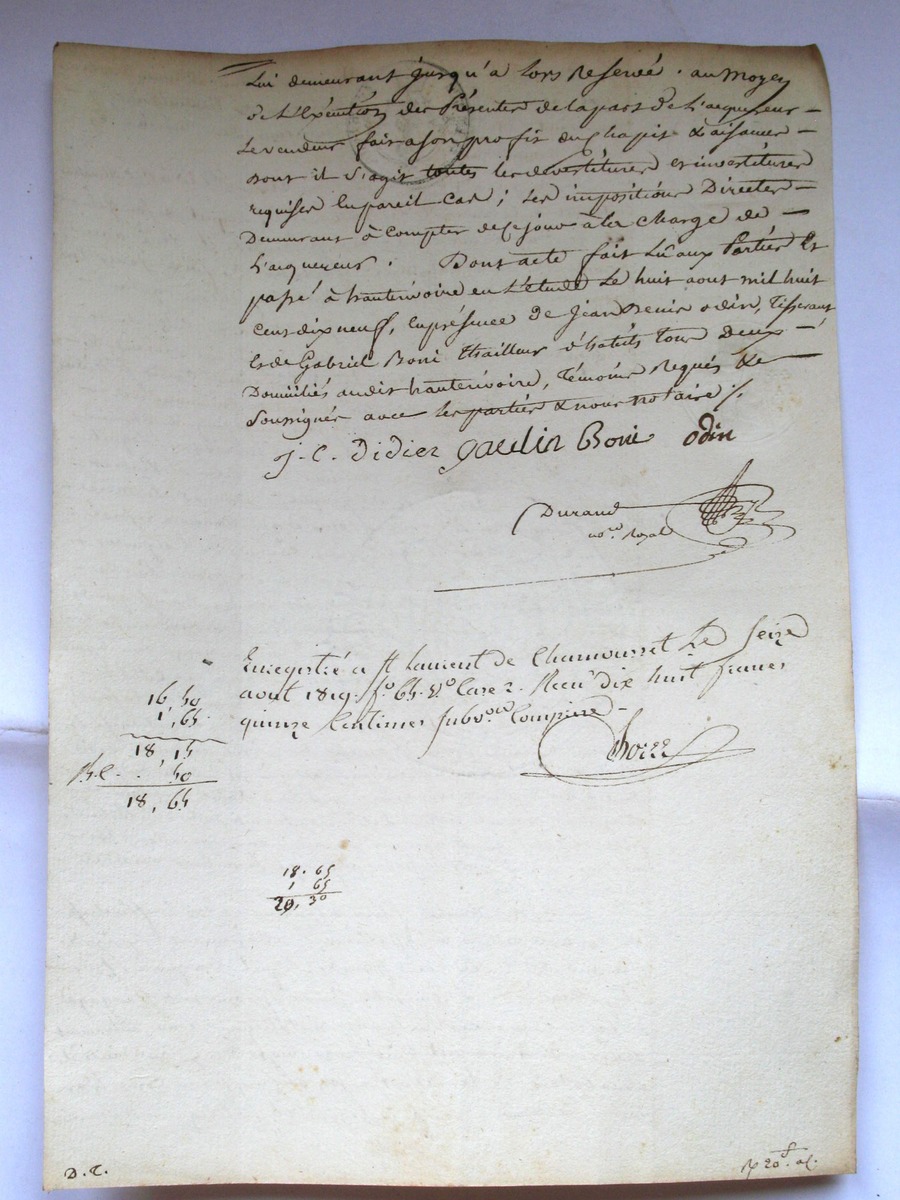 Lui demeurant jusqu'a lors Reservé. au moyen
de L'Exécution des Présentes de la part de L'acquereur –
Le vendeur fait a son profit du Chapit & aisances –
Dont il s'agit toutes les devestitures et investitures
requises En pareil Cas ; Les impositions Directes –
Demeurant à Compter de Ce jour à la Charge de –
L'acquereur. Dont acte fait Lu aux Parties Et
passé à hauterivoire en L'étude Le huit aout mil huit
Cent dix neuf, En présence de Jean Denis odin, Tisserant
Et de Gabriel Boni thailleur d'habits tous Deux –
Domiciliés audit hauterivoire, Témoins Requis &
Soussignés avec les parties & nous notaire /.
J. C. Didier gaulin Boni odin
Durand
no.re Royal
Enregistré a St Laurent de Chamousset Le Seize
aout 1819. fo 65. Vo Case 2. Recu dix huit francs
quinze Centimes Subv.on Comprise –
16,50
1,65
18,15
50
18,65
18.65
1 65
20,30
D. C.